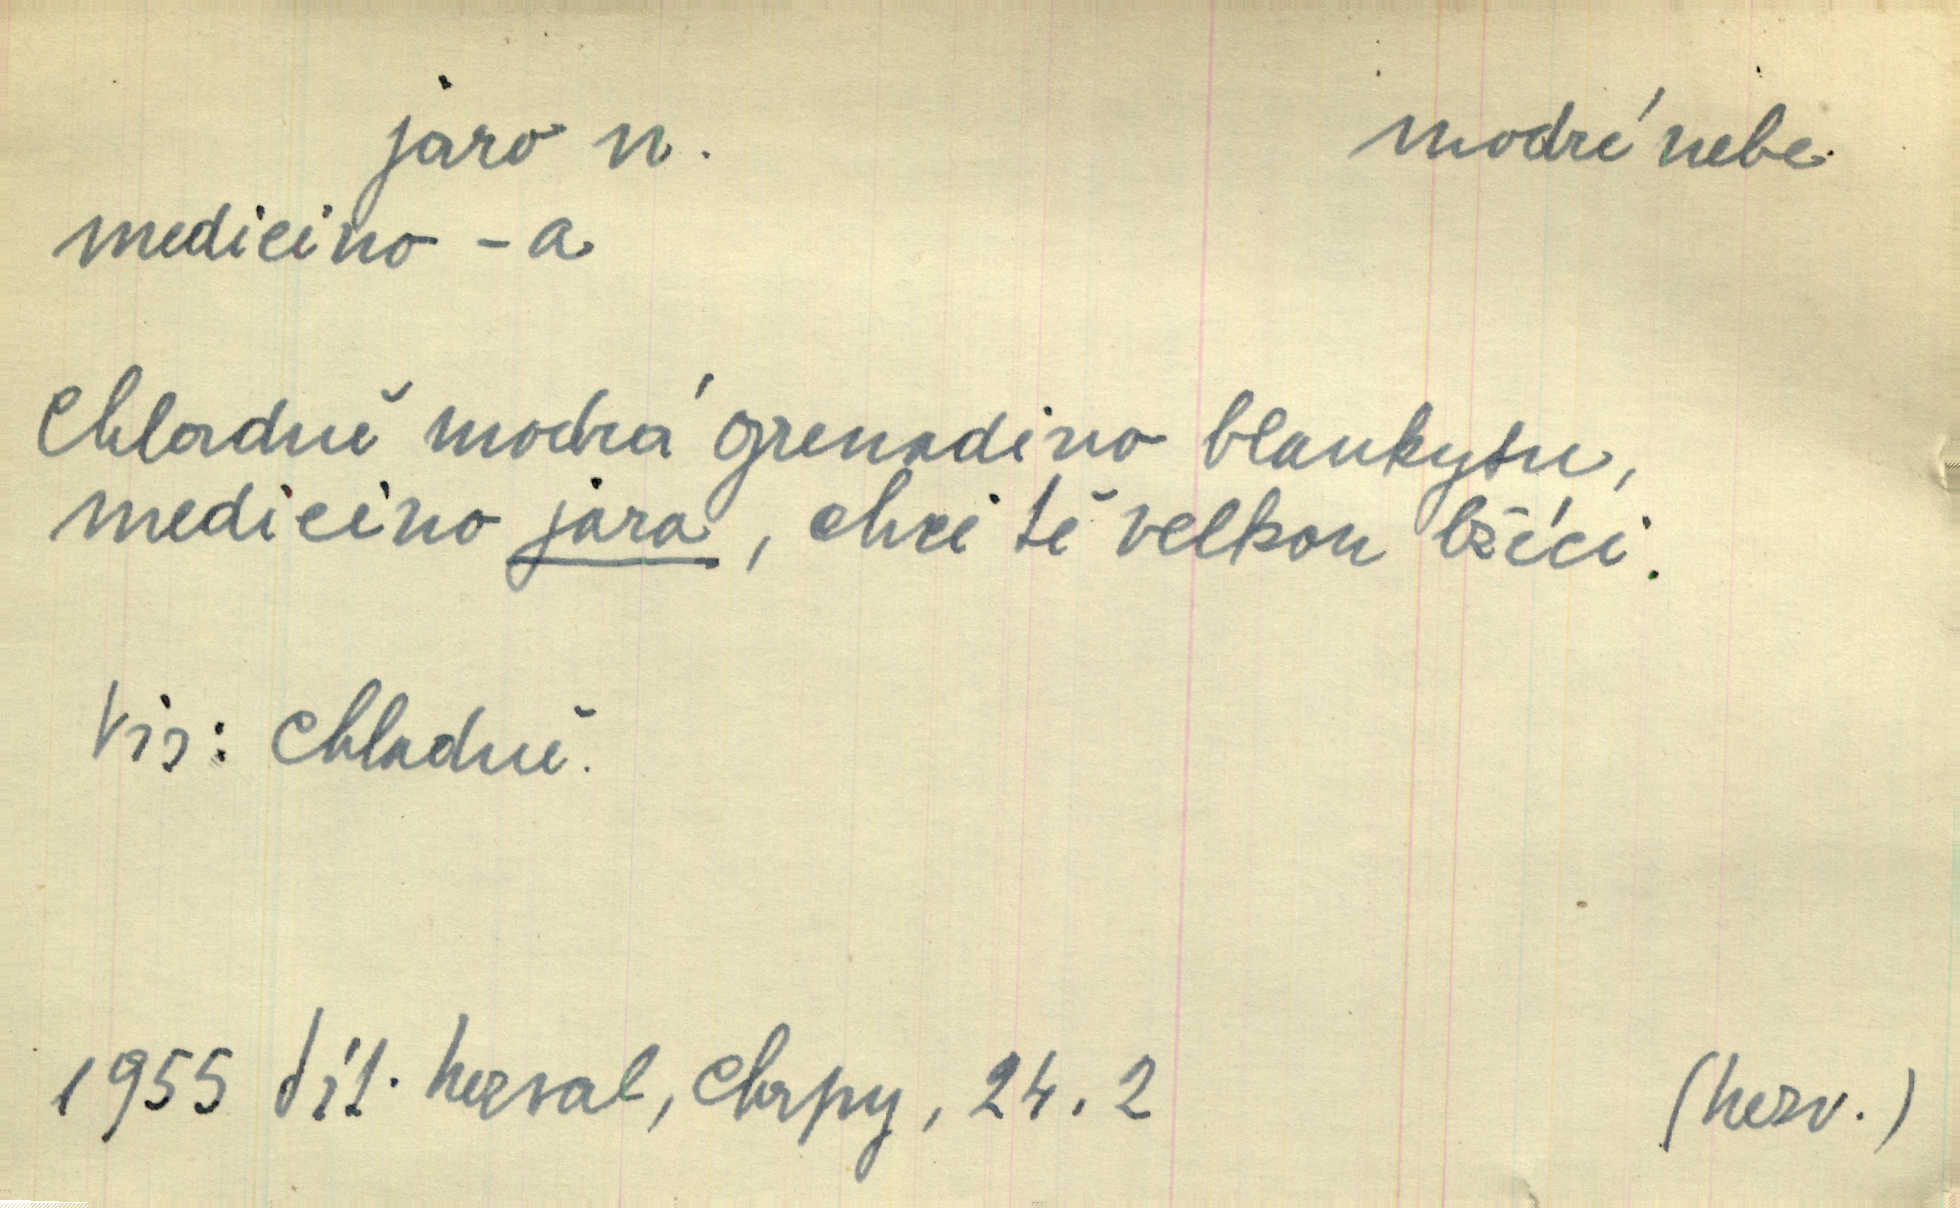 jaro n.
modré nebe
medicino -a
Chladně modrá grenadino blankytu,
medicino jara, chci tě velkou lžící.
Viz: Chladně.
1955 Vít. Nezval, Chrpy, 24.2
(Nezv.)